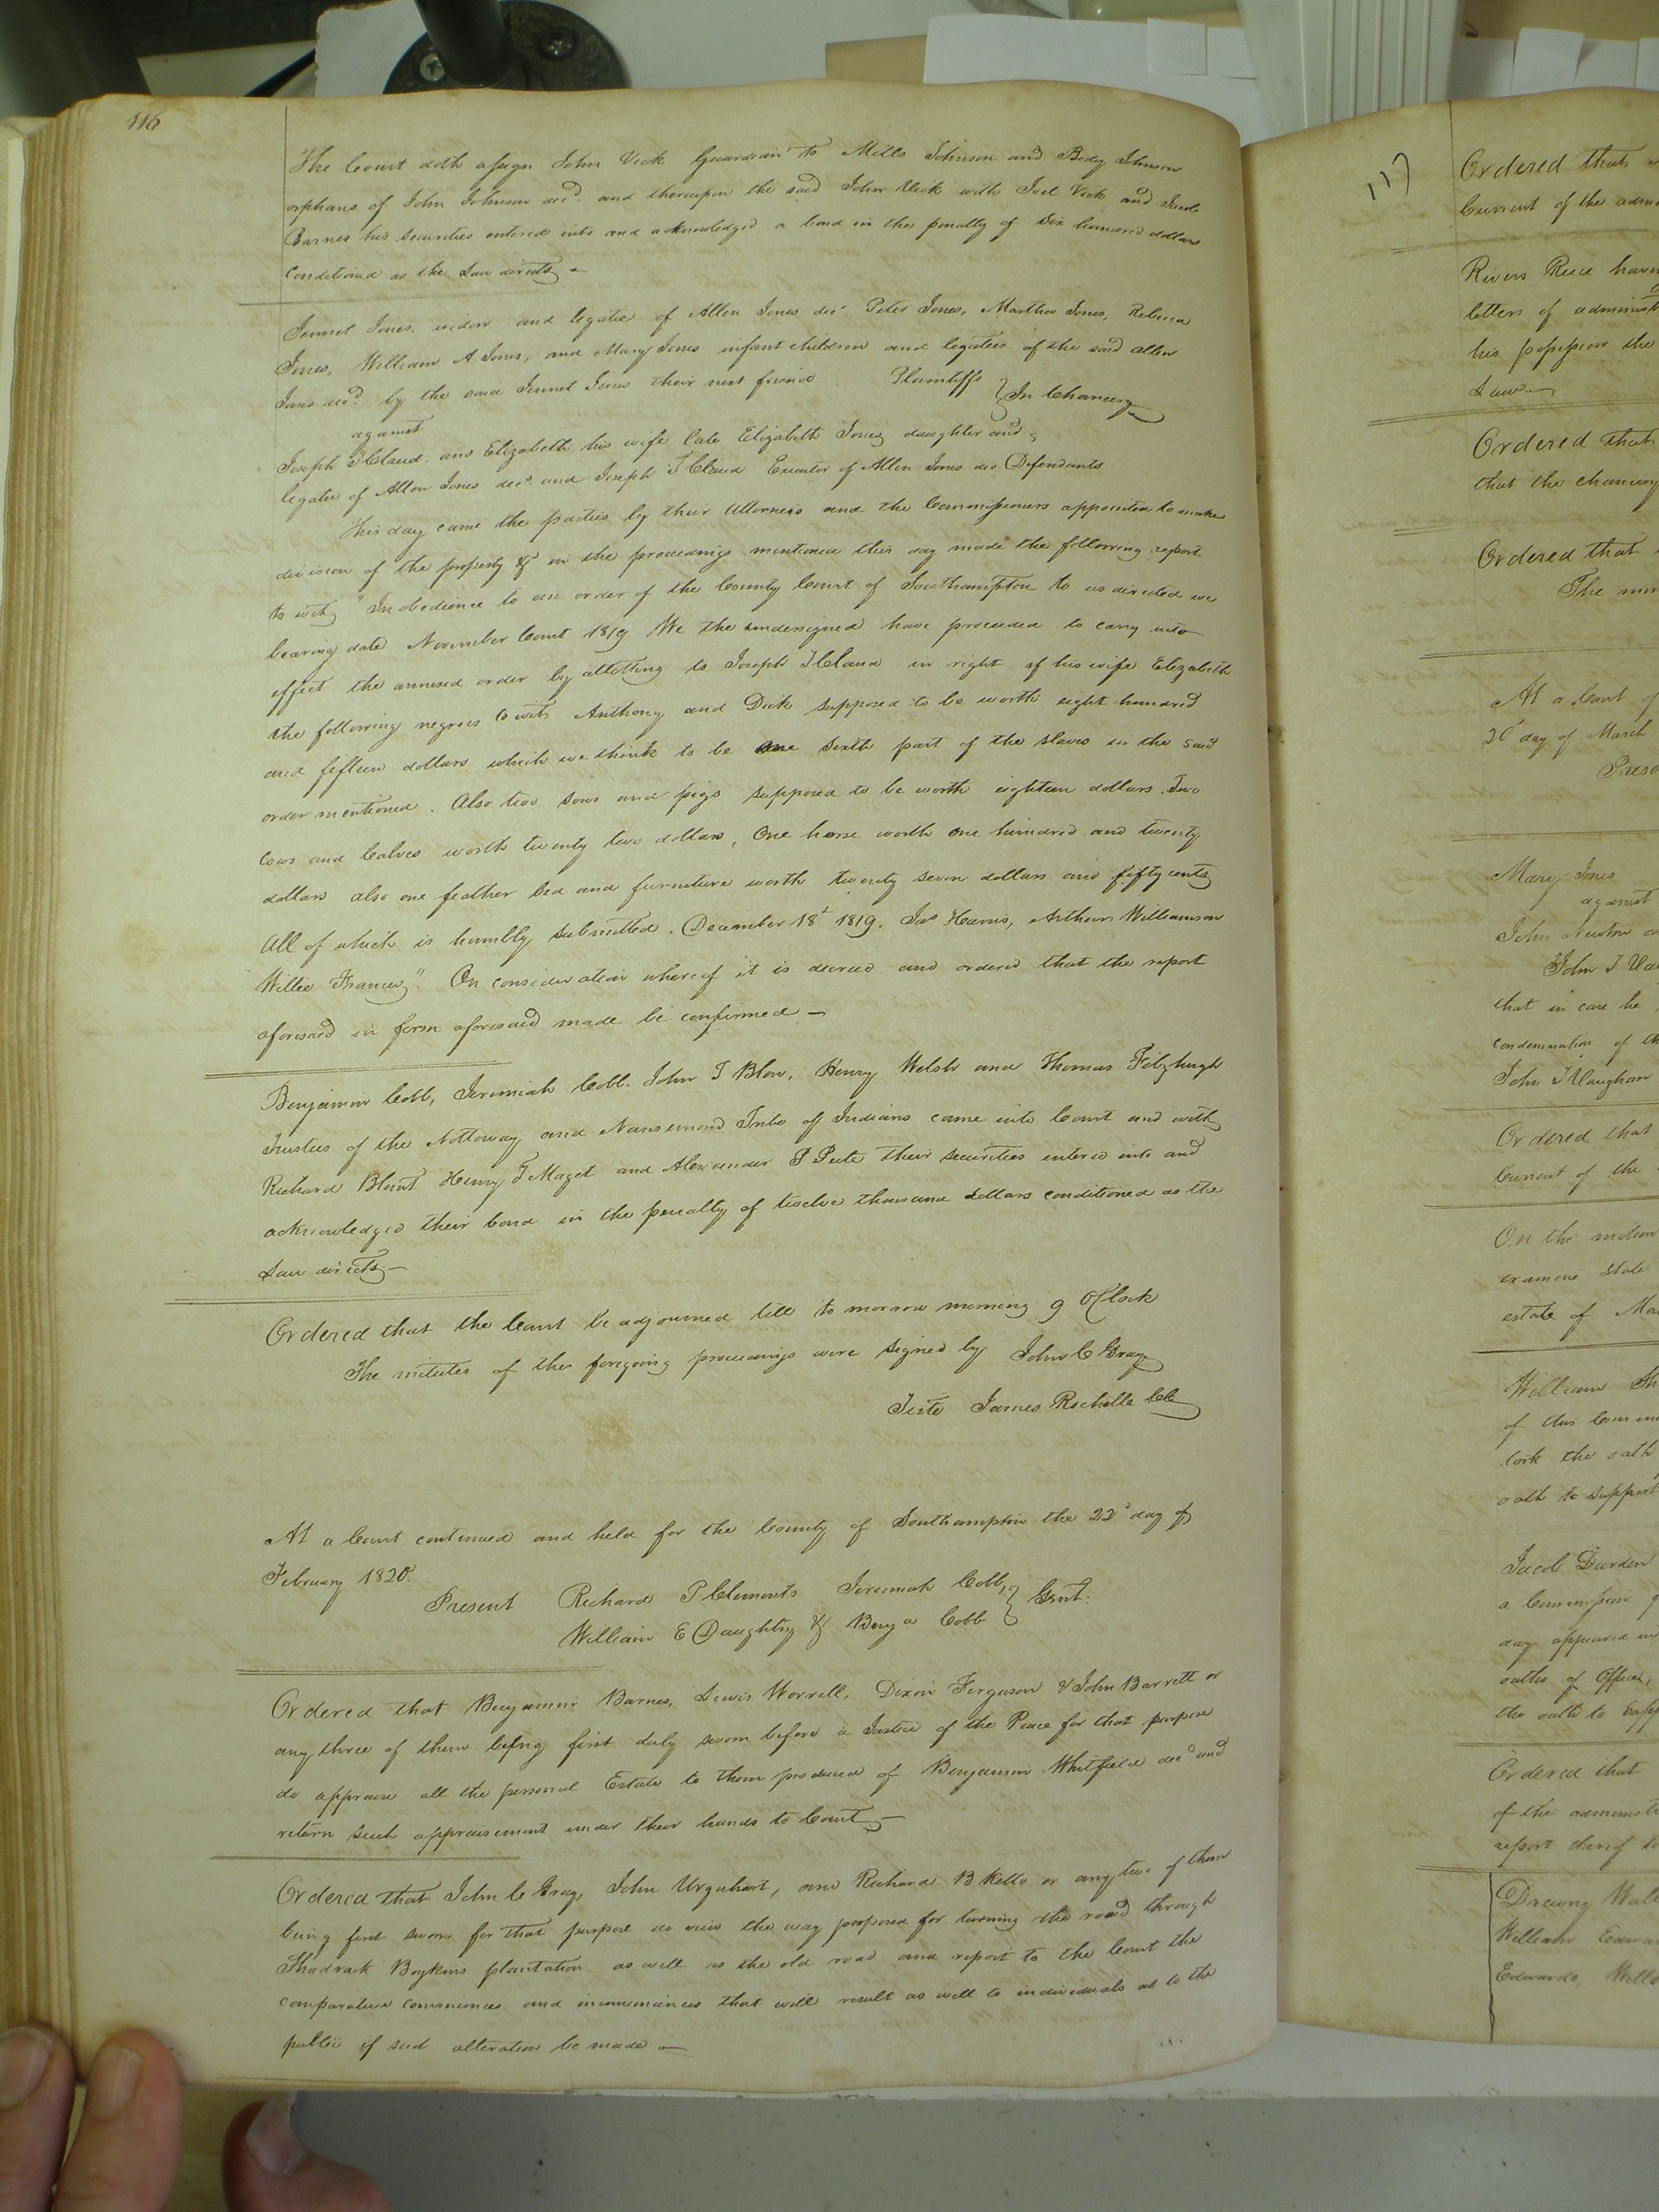 116
The Court doth assign John Vick Guardian to Mills Johnson and Johnson
orphans of John Johnson decd. and thereupon the said John Vick with Joel Vick and Jacob
Barnes his securities entered into and acknowledged a bond in the penalty of Six hundred dollars
conditioned as the Law directs
Jones, widow and legatee of Allen Jones decd Peter Jones, Martha Jones, Rebecca
Jones, William A Jones, and Mary Jones infant children and legatees of the said Allen
Jones decd. by the said Jones their next friend Plaintiffs
In Chancery
against
Joseph T Claud and Elizabeth his wife late Elizabeth Jones daughter and
legatee of Allen Jones decd and Joseph T Claud Executor of Allen Jones decd Defendants
This day came the parties by their Attornies and the Commissioners appointed to make
division of the property &c in the proceedings mentioned this day made the following report
to wit, "In obedience to an order of the County Court of Southampton to us directed
bearing date November Court 1819 We the undersigned have proceeded to carry into
effect the annexed order by allotting to Joseph T Claud in right of his wife Elizabeth
the following negroes to wit, Anthony and Dick supposed to be worth eight hundred
and fifteen dollars which we think to be one sixth part of the slaves in the said
order mentioned. Also two sows and pigs supposed to be worth eighteen dollars. Two
cows and Calves worth twenty two dollars, One horse worth one hundred and twenty
dollars also one feather bed and furniture worth twenty seven dollars and fifty cents
All of which is humbly submitted. December 18t 1819. Jas Harris, Arthur Williamson
Willie Francis". On consideration whereof it is decreed and ordered that the report
aforesaid in form aforesaid made be confirmed
Benjamin Cobb, Jeremiah Cobb, John T Blow, Henry Welsh and Thomas Fitzhugh
Trustees of the Nottoway and Nansemond Tribe of Indians came into Court and with
Richard Blunt Henry T Maget and Alexander P Peete their securities entered into and
acknowledged their bond in the penalty of twelve thousand dollars conditioned as the
Law directs
Ordered that the Court be adjourned till to morrow morning 9 OClock
The minutes of the foregoing proceedings were signed by John C Gray
Teste James Rochelle
At a Court continued and held for the County of Southampton the 22d day of
February 1820.
Present Richard P Clements Jeremiah Cobb, } Gent.
William E Daughtry & Benja Cobb
Ordered that Benjamin Barnes, Lewis Worrell, Dixon Ferguson & John Barrett or
any three of them being first duly sworn before a Justice of the Peace for that purpose
do appraise all the personal Estate to them produced of Benjamin Whitfield decd and
return such appraisement under their hands to Court
Ordered that John C Gray, John Urquhart, and Richard B Kello or any two of them
being first sworn for that purpose do view the way proposed for turning the road through
Shadrack Boykins plantation as well as the old road and report to the Court the
comparative conveniences and inconveniences that will result as well to individuals as to the
public if such alteration be made
117
Ordered that
Current of the
Rivers Reese
letters of
his possession the
Law
Ordered that
that the chancery
Ordered that
The
At a Court of
20 day of March
Mary Jones
against
John Newton
John T
that in case he
condemnation of
John T Vaughan
Ordered that
Current of the
On the motion
examine state
estate of
William
of this
took the oath
oath to support
Jacob Durden
a Commission
day appeared
oaths of Office,
the oath to
Ordered that
of the
report thereof
Drewry
William
Edwards,